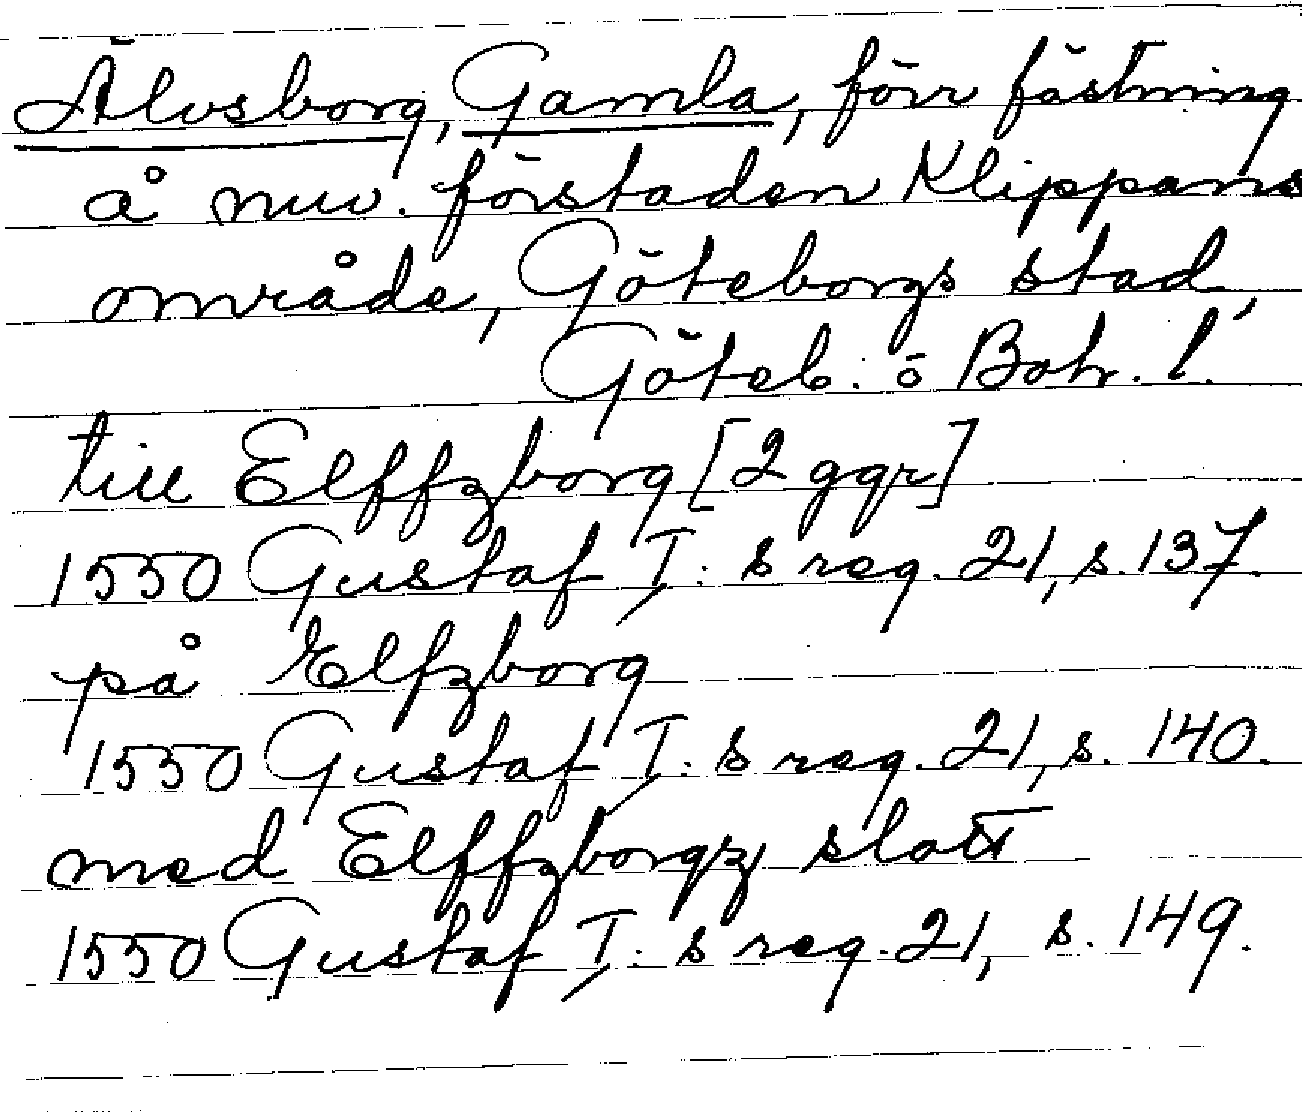 Älvsborg, Gamla, förr fästning
å nuv. förstaden Klippans
område, Göteborgs stad,
Göteb. o Boh. l.
till Elffzborg [2 ggr]
1550 Gustaf I: s reg. 21, s. 137.
på Elfzborg
1550 Gustaf I: s reg. 21, s. 140.
med Elffzborgz slott
1550 Gustaf I: s reg. 21, s. 149.